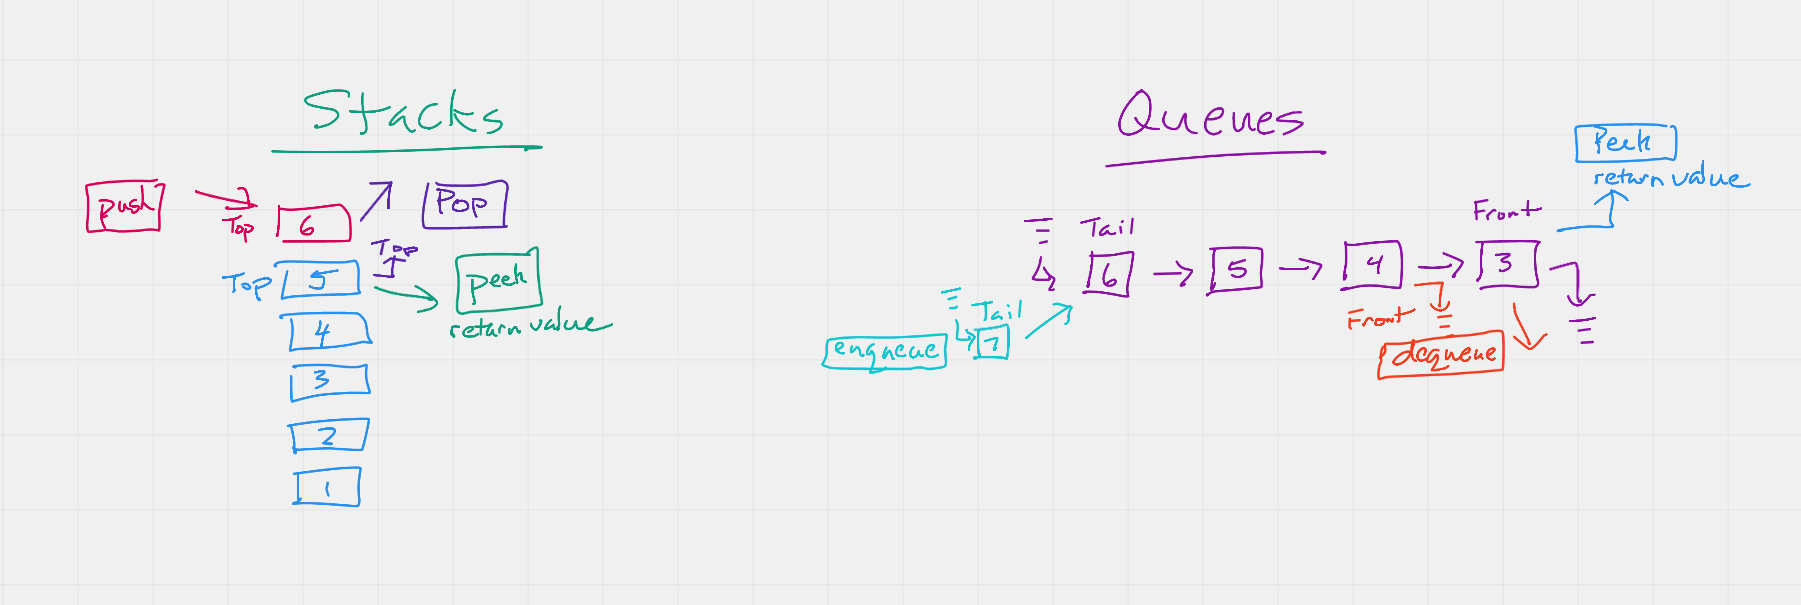 Stacks
push
Top
6
Pop
Top
Top
5
peek
return value
4
3
2
1
Queues
Peek
return value
Tail
Front
6
5
4
3
Tail
7
enqueue
Front
dequeue